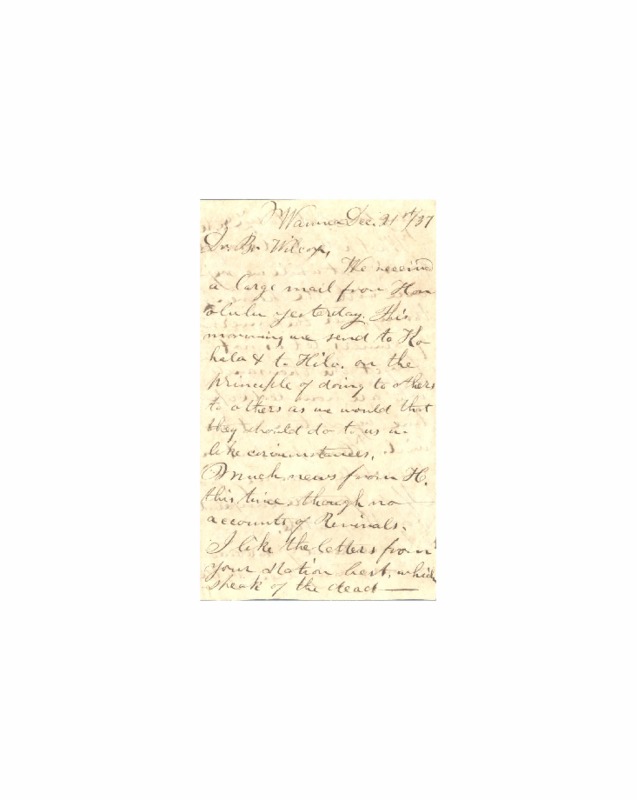 Waimea Dec. 21st/37
Dr. Br. Wilcox,
We received
a large mail from Hon
olulu yesterday. This
morning we send to Ko
hala & to Hilo. on the
principle of doing to others
to others as we would that
they should do to us in
like circumstances.
Much news from H.
this time, though no
accounts of Revivals.
I like the letters from
your station best, which
speak of the dead —